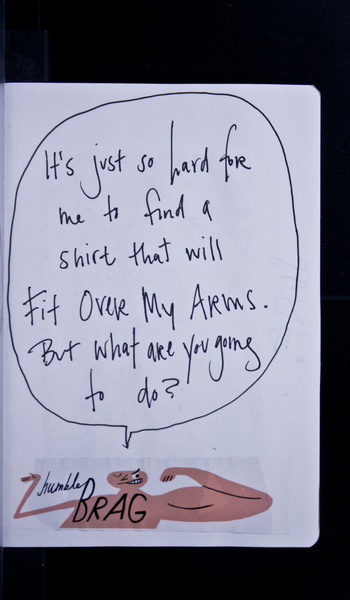 It's just so hard for
me to find a
shirt that will
Fit Over My Arms.
But what are you going
to do?
humble
BRAG